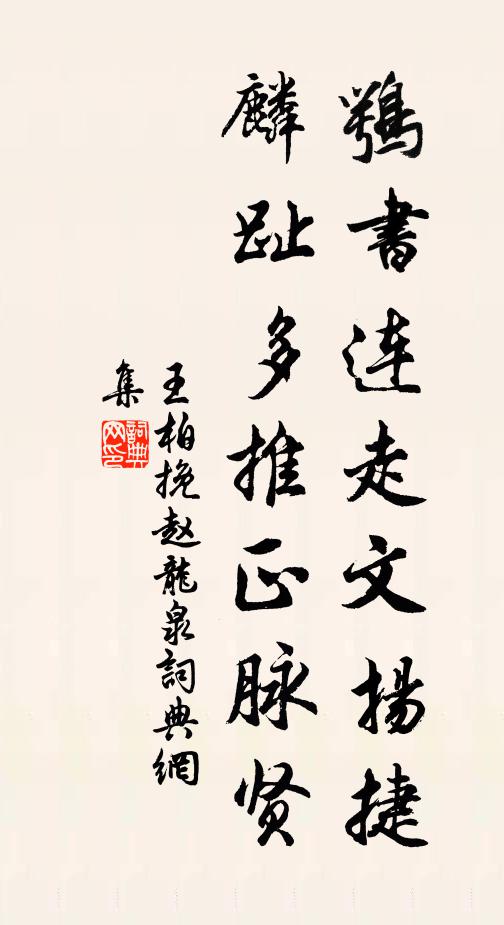 鶚書连走文揚捷
麟趾多推正脉贤
王柏挽赵龍泉詞典網
集
詞典
网印